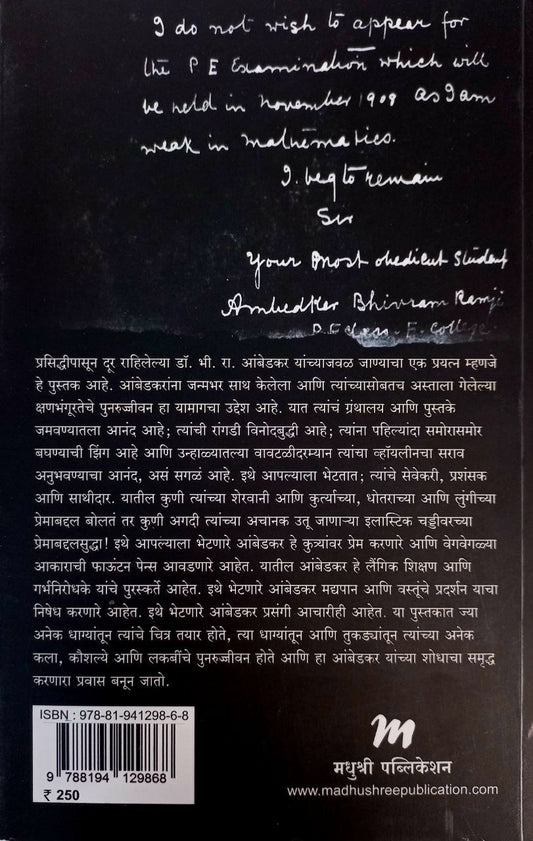 I do not wish to appear for
the P E Examination which will
be held in November 1909 as I am
weak in mathematics.
I beg to remain
Sir
Your most obedient Student
Ambedker Bhivram Ramji
P. E class. E. College
प्रसिद्धीपासून दूर राहिलेल्या डॉ. भी. रा. आंबेडकर यांच्याजवळ जाण्याचा एक प्रयत्न म्हणजे
हे पुस्तक आहे. आंबेडकरांना जन्मभर साथ केलेला आणि त्यांच्यासोबतच अस्ताला गेलेल्या
क्षणभंगूरतेचे पुनरुज्जीवन हा यामागचा उद्देश आहे. यात त्यांचं ग्रंथालय आणि पुस्तके
जमवण्यातला आनंद आहे; त्यांची रांगडी विनोदबुद्धी आहे; त्यांना पहिल्यांदा समोरासमोर
बघण्याची झिंग आहे आणि उन्हाळ्यातल्या वावटळीदरम्यान त्यांचा व्हॉयलीनचा सराव
अनुभवण्याचा आनंद, असं सगळं आहे. इथे आपल्याला भेटतात; त्यांचे सेवेकरी, प्रशंसक
आणि साथीदार. यातील कुणी त्यांच्या शेरवानी आणि कुर्त्याच्या, धोतराच्या आणि लुंगीच्या
प्रेमाबद्दल बोलतं तर कुणी अगदी त्यांच्या अचानक उतू जाणाऱ्या इलास्टिक चड्डीवरच्या
प्रेमाबद्दलसुद्धा! इथे आपल्याला भेटणारे आंबेडकर हे कुत्र्यांवर प्रेम करणारे आणि वेगवेगळ्या
आकाराची फाऊंटन पेन्स आवडणारे आहेत. यातील आंबेडकर हे लैंगिक शिक्षण आणि
गर्भनिरोधके यांचे पुरस्कर्ते आहेत. इथे भेटणारे आंबेडकर मद्यपान आणि वस्तूंचे प्रदर्शन याचा
निषेध करणारे आहेत. इथे भेटणारे आंबेडकर प्रसंगी आचारीही आहेत. या पुस्तकात ज्या
अनेक धाग्यांतून त्यांचे चित्र तयार होते, त्या धाग्यांतून आणि तुकड्यांतून त्यांच्या अनेक
कला, कौशल्ये आणि लकबींचे पुनरुज्जीवन होते आणि हा आंबेडकर यांच्या शोधाचा समृद्ध
करणारा प्रवास बनून जातो.
ISBN : 978-81-941298-6-8
9 788194 129868
₹ 250
मधुश्री पब्लिकेशन
www.madhushreepublication.com